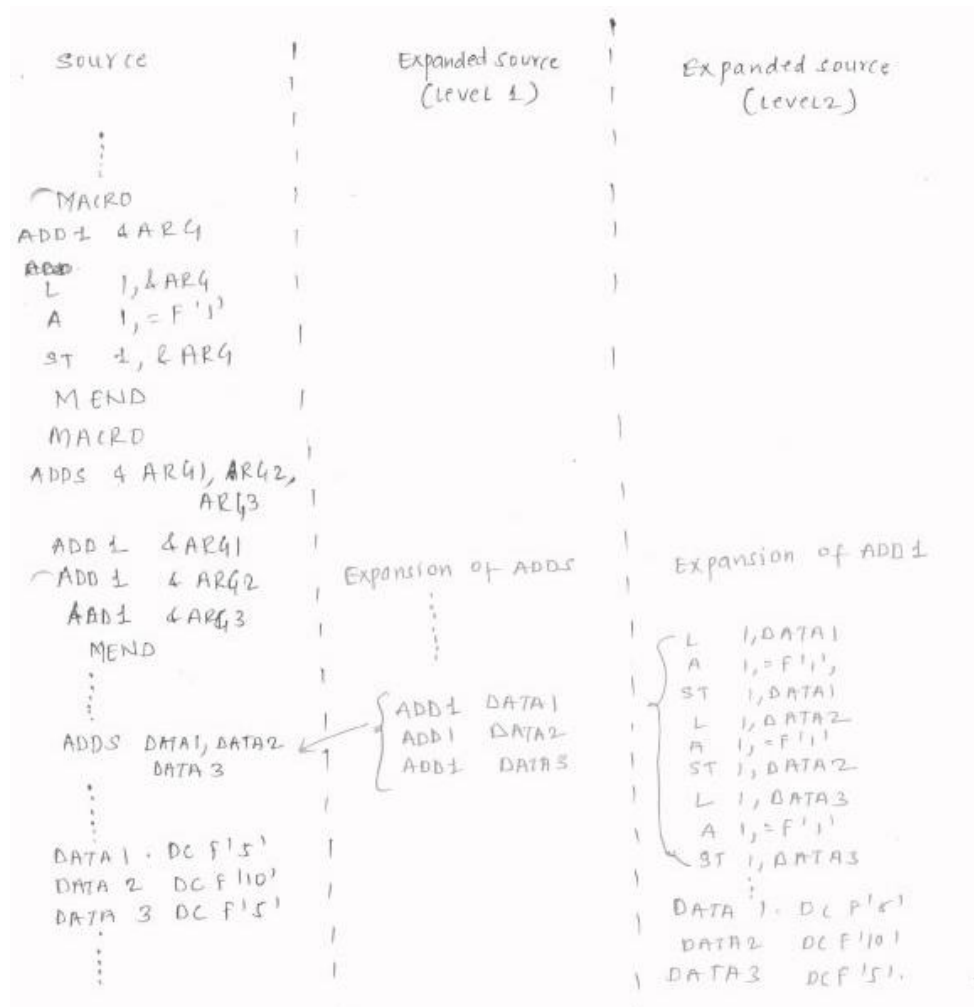 Source
MACRO
ADD1 &ARG
L 1,&ARG
A 1,=F'1'
ST 1,&ARG
MEND
MACRO
ADDS &ARG1, ARG2,
ARG3
ADD1 &ARG1
ADD1 &ARG2
ADD1 &ARG3
MEND
ADDS DATA1, DATA2
DATA3
DATA1. DC F'5'
DATA2 DC F'10'
DATA3 DC F'5'
Expanded source
(Level 1)
Expansion of ADDS
ADD1 DATA1
ADD1 DATA2
ADD1 DATA3
Expanded source
(Level2)
Expansion of ADD1
L 1,DATA1
A 1,=F'1',
ST 1,DATA1
L 1,DATA2
A 1,=F'1'
ST 1,DATA2
L 1,DATA3
A 1,=F'1'
ST 1,DATA3
DATA 1. DC F'5'
DATA2 DC F'10'
DATA3 DC F'5'.